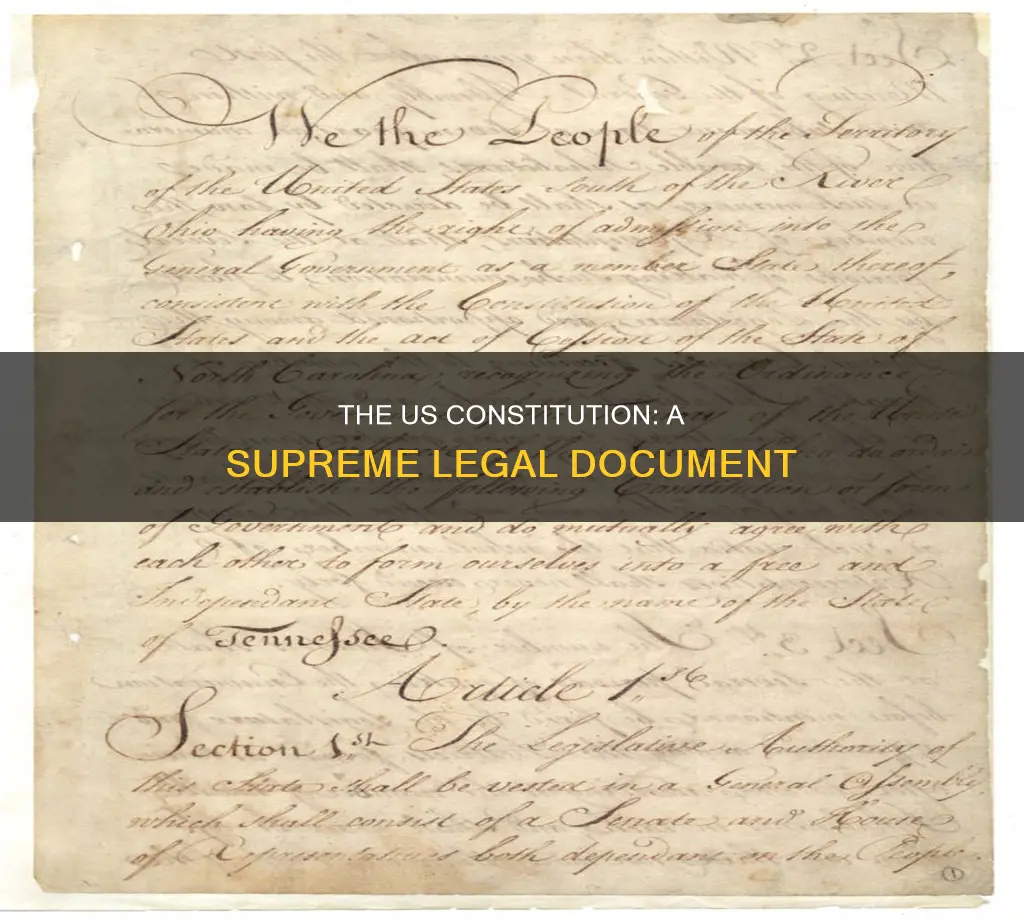 We the People of the Territory
of the United States South of the River
Ohio having the right of admission into the
General Government as a member State thereof,
consistent with the Constitution of the United
States and the act of Cession of the State of
North Carolina, recognizing the Ordinance
THE US CONSTITUTION: A
for the Territory of the United
SUPREME LEGAL DOCUMENT
and establish the following Constitution or form
of Government and do mutually agree with
each other to form ourselves into a free and
Independant State, by the name of the State
of Tennessee.
Article 1.st
Section 1.st The Legislative Authority of
this State shall be vested in a General Assembly,
which shall consist of a Senate and House
of Representatives both dependant on the People.
1